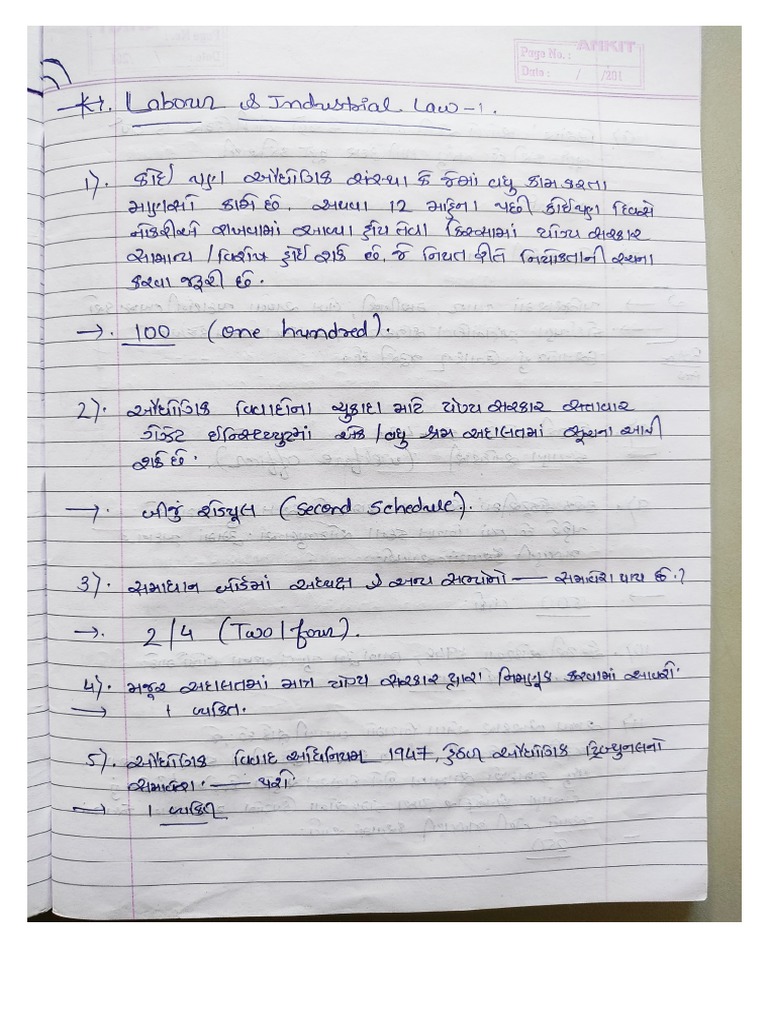 ANKIT
Page No. :
Date : / /201
Labour & Industrial Law - 1.
1). કોઈ પણ ઔદ્યોગિક સંસ્થા કે જેમાં વધુ કામ કરતા
માણસો કામે છે. અથવા 12 મહિના પછી કોઈપણ દિવસે
નોકરીએ રાખવામાં આવ્યા હોય તેવા કિસ્સામાં યોગ્ય સરકાર
સામાન્ય / વિશેષ હોઈ શકે છે, જે નિયત રીતે નિયોક્તાની રચના
કરવા જરૂરી છે.
→. 100 (One hundred).
2). ઔદ્યોગિક વિવાદોના ચુકાદા માટે યોગ્ય સરકાર સત્તાવાર
ગેઝેટ ઇન્સ્ટિટ્યુટમાં એક / વધુ શ્રમ અદાલતમાં સૂચના આપી
શકે છે.
→. બીજું શેડ્યૂલ (Second Schedule).
3). સમાધાન બોર્ડમાં અધ્યક્ષ & અન્ય સભ્યોનો — સમાવેશ થાય છે.?
→. 2/4 (Two/four).
4). મજૂર અદાલતમાં માત્ર યોગ્ય સરકાર દ્વારા નિમણૂક કરવામાં આવશે.
→ 1 વ્યક્તિ.
5). ઔદ્યોગિક વિવાદ અધિનિયમ 1947, હેઠળ ઔદ્યોગિક ટ્રિબ્યુનલનો
સમાવેશ. — થશે.
→ 1 વ્યક્તિ